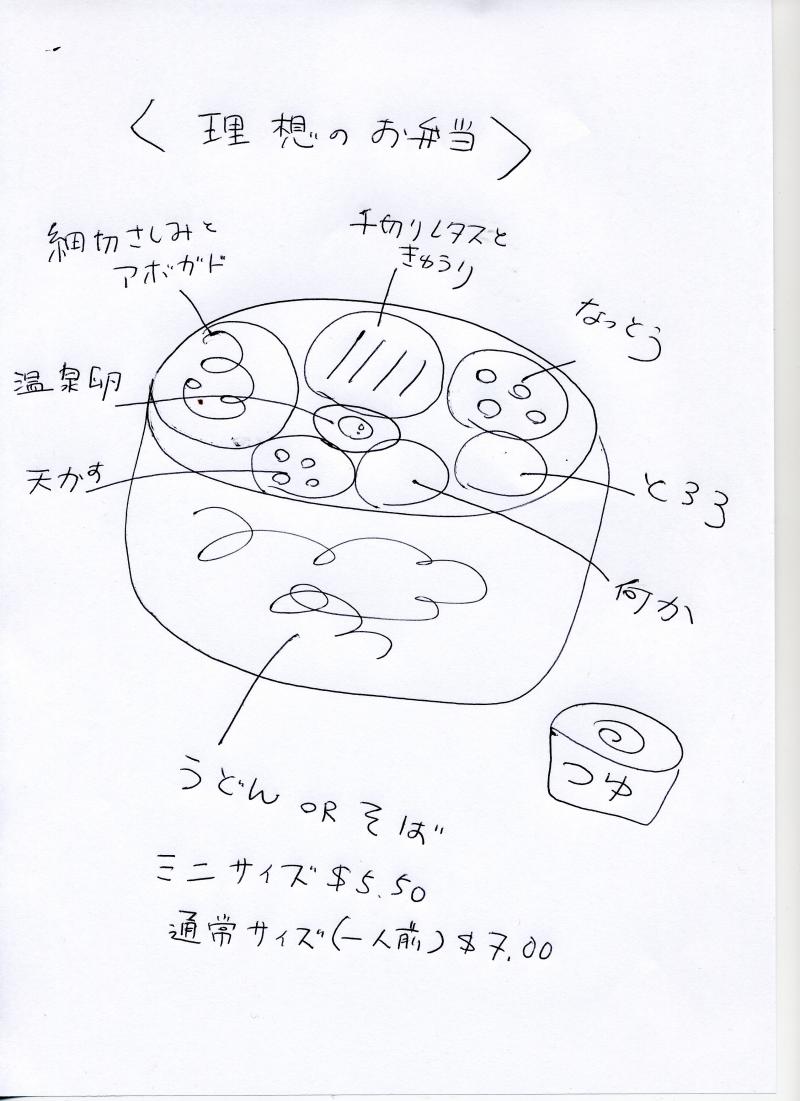 〈 理想のお弁当 〉
細切さしみと
アボガド
千切りレタスと
きゅうり
なっとう
温泉卵
天かす
とろろ
何か
つゆ
うどん OR そば
ミニサイズ $5.50
通常サイズ(一人前) $7.00